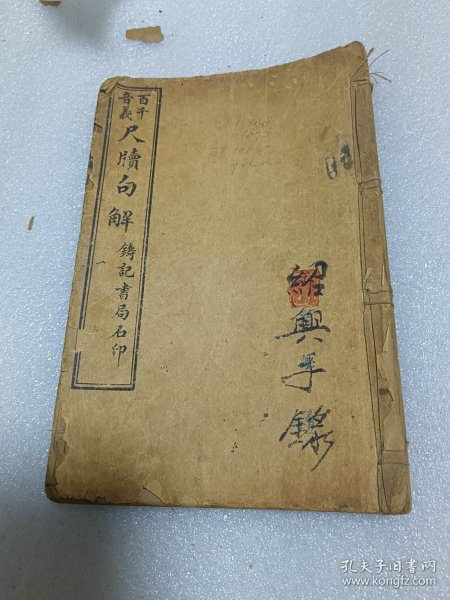 百千
音義
尺牘句解
鋳記書局石印
紹興手錄
孔夫子旧书网
www.kongfz.com